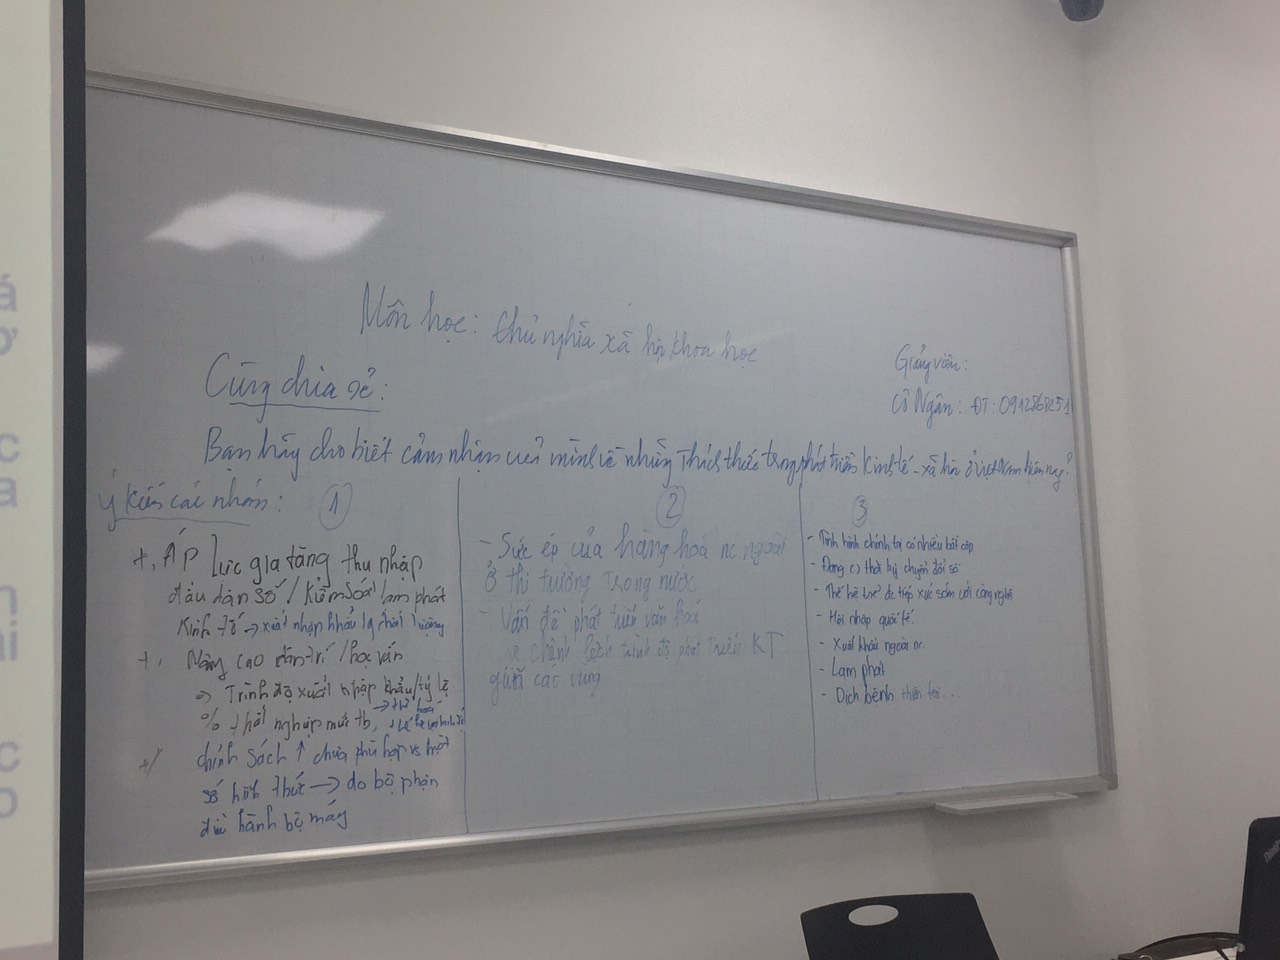 Môn học: Chủ nghĩa xã hội khoa học
Giảng viên:
Cô Ngân: ĐT:
Cùng chia sẻ:
Bạn hãy cho biết cảm nhận của mình về những Thách thức trong phát triển Kinh tế - xã hội ở Việt Nam hiện nay?
ý kiến các nhóm:
1
+, ÁP lực gia tăng thu nhập
đầu dân số / kiểm soát lạm phát
Kinh tế → xuất nhập khẩu
+, Nâng cao dân trí / học vấn
Trình độ xuất nhập khẩu / tỷ lệ
% thất nghiệp mức tb,
+/ chính sách ↑ chưa phù hợp vs một
số hình thức → do bộ phận
điều hành bộ máy
2
- Sức ép của hàng hoá nc ngoài
ở thị trường trong nước
- Vấn đề phát triển văn hoá
chênh lệch trình độ phát triển KT
giữa các vùng
3
- Tình hình chính trị có nhiều bất cập
- Đang thời kỳ chuyển đổi số
- Thế hệ trẻ tiếp xúc sớm với công nghệ
- Hội nhập quốc tế
- Xuất khẩu người nc
- Lạm phát
- Dịch bệnh thiên tai...